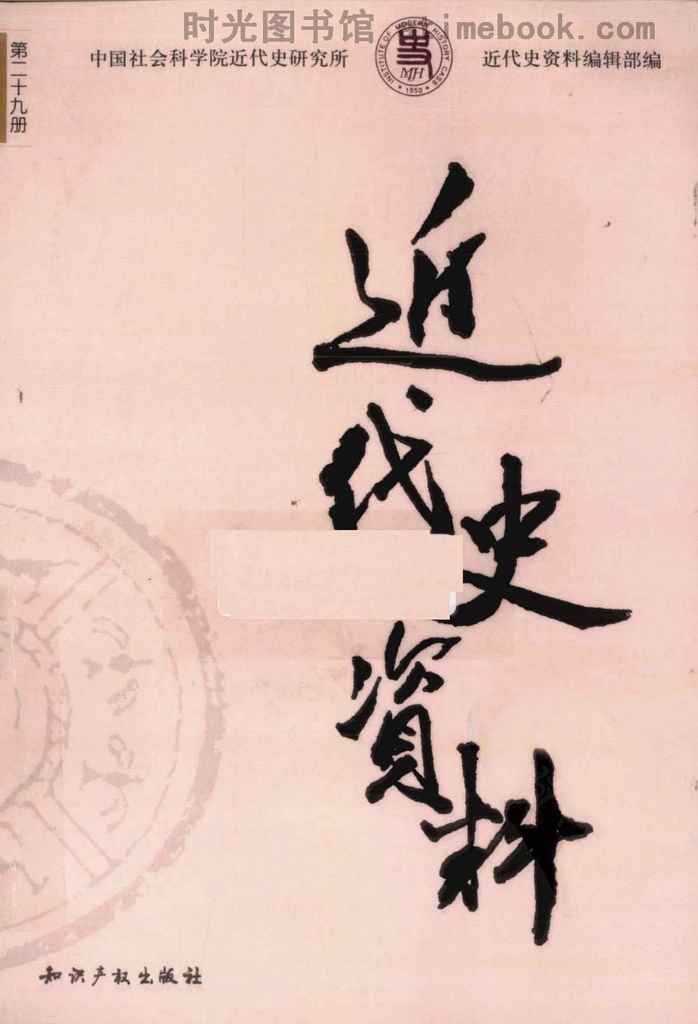 时光图书馆
imebook.com
第二十九册
中国社会科学院近代史研究所
INSTITUTE OF MODERN HISTORY CASS
MH
1950
近代史资料编辑部编
近代史資料
知识产权出版社